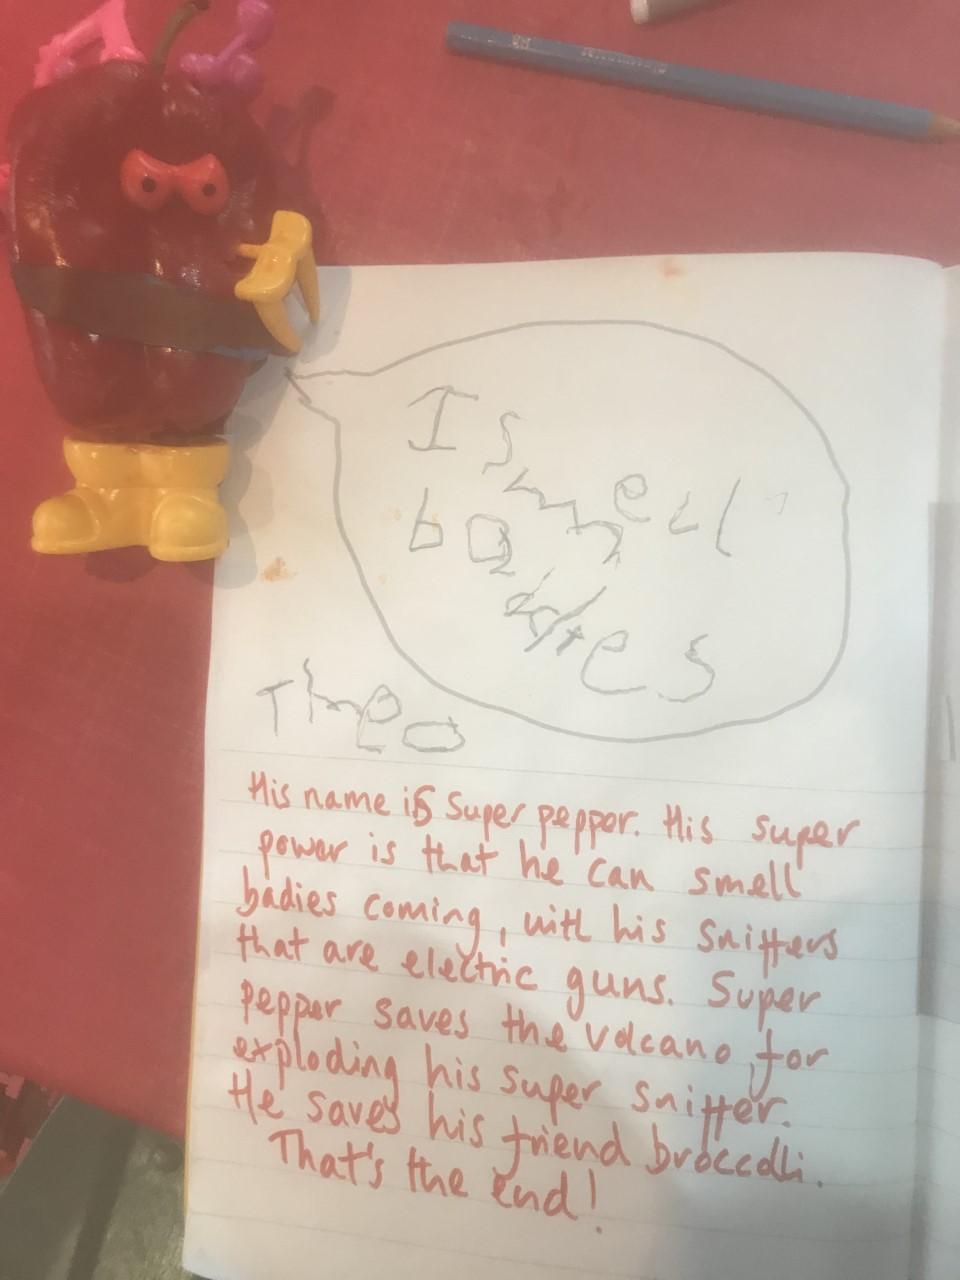 I smell
badies
Theo
His name is Super pepper. His super
power is that he can smell
badies coming, with his sniffers
that are electric guns. Super
pepper saves the volcano for
exploding his super sniffer.
He saves his friend broccolli.
That's the end!